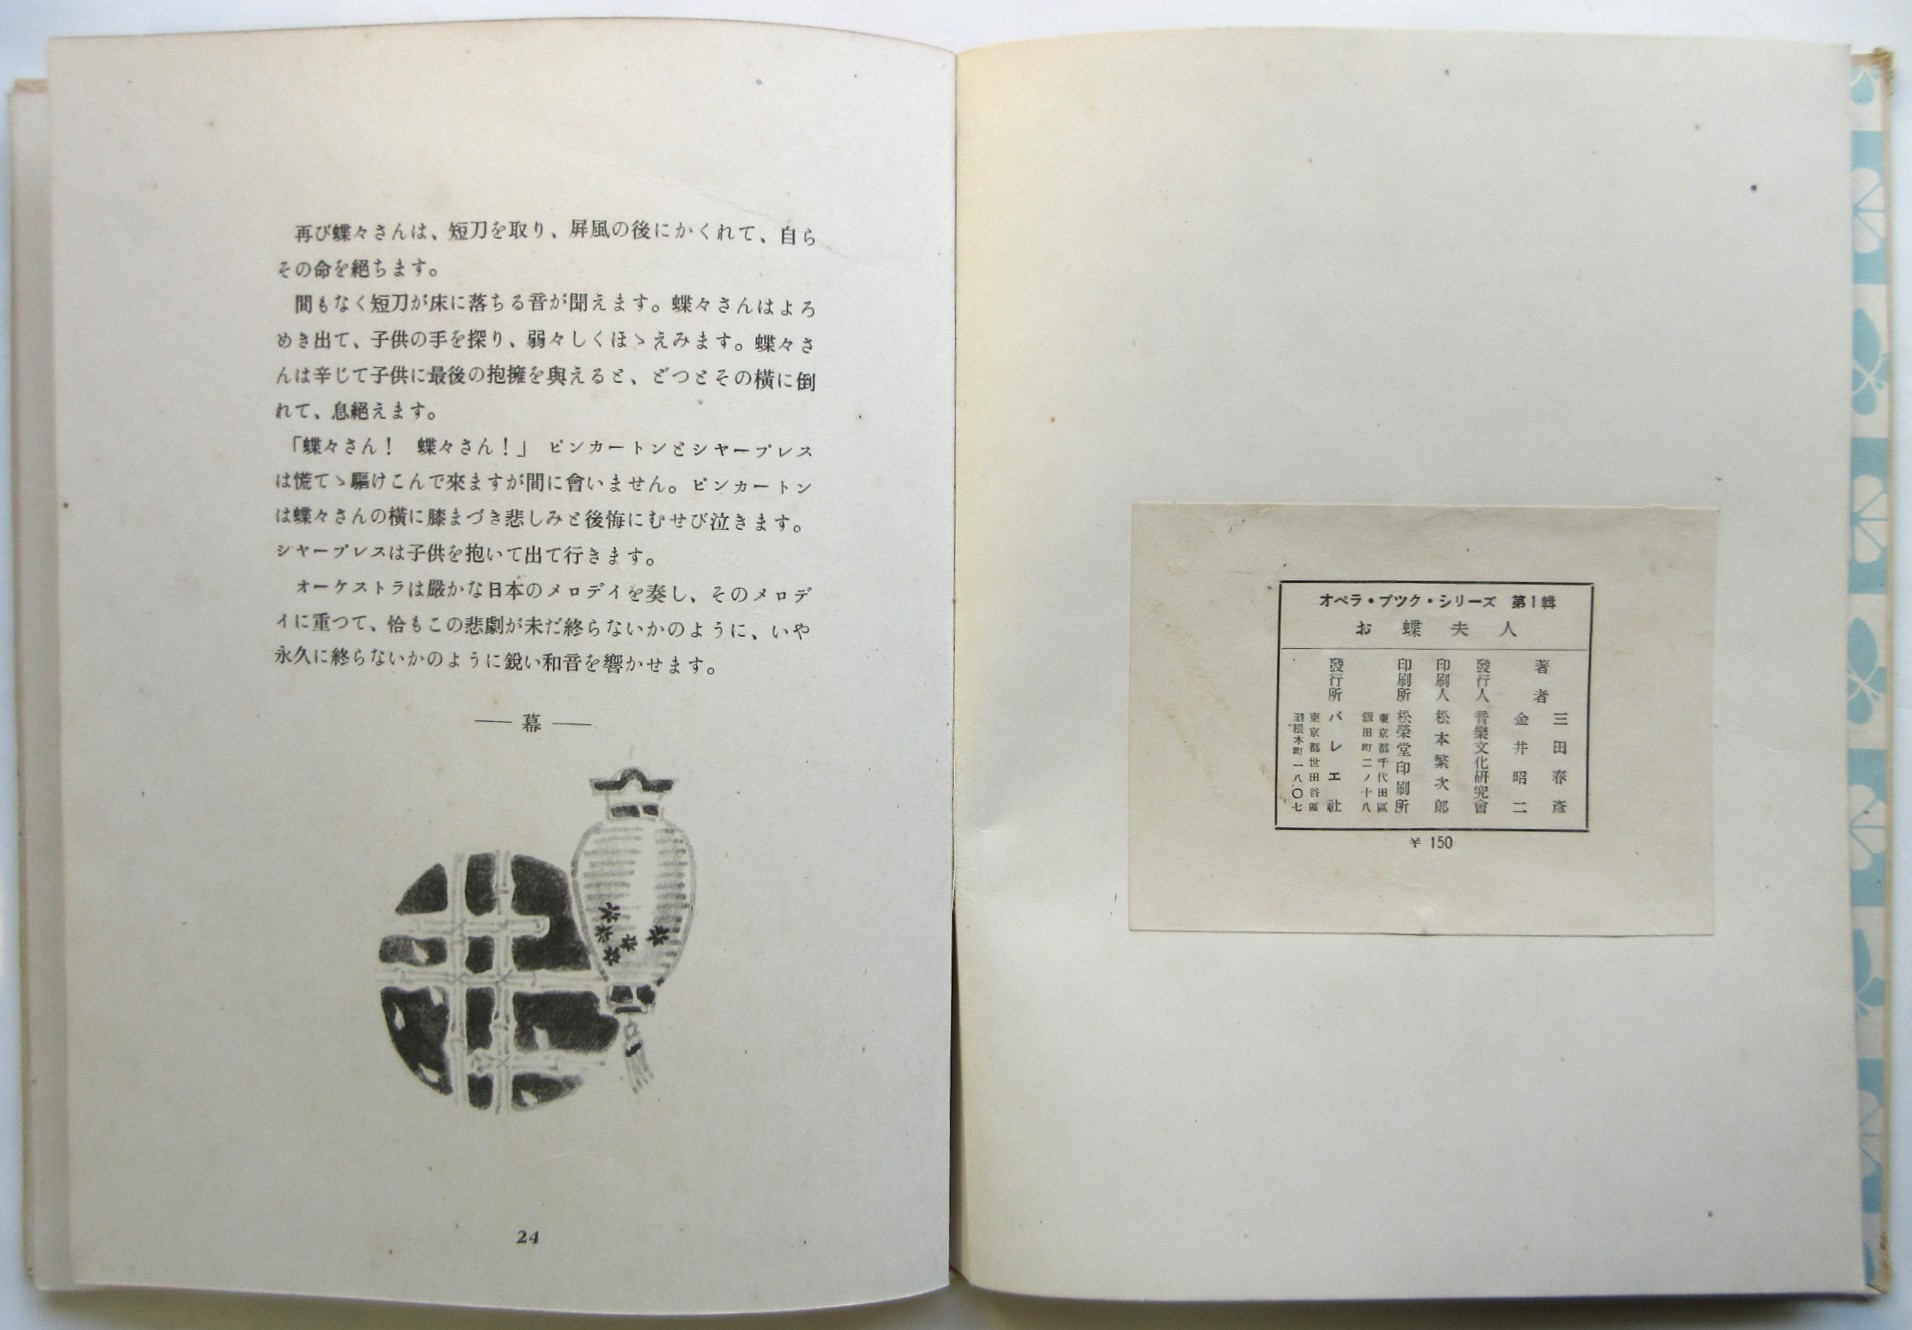 再び蝶々さんは、短刀を取り、屏風の後にかくれて、自ら
その命を絕ちます。
間もなく短刀が床に落ちる音が聞えます。蝶々さんはよろ
めき出て、子供の手を探り、弱々しくほゝえみます。蝶々さ
んは辛じて子供に最後の抱擁を與えると、どつとその橫に倒
れて、息絕えます。
「蝶々さん!　蝶々さん!」 ピンカートンとシヤープレス
は慌てゝ驅けこんで來ますが間に會いません。ピンカートン
は蝶々さんの橫に膝まづき悲しみと後悔にむせび泣きます。
シヤープレスは子供を抱いて出て行きます。
オーケストラは嚴かな日本のメロデイを奏し、そのメロデ
イに重つて、恰もこの悲劇が未だ終らないかのように、いや
永久に終らないかのように鋭い和音を響かせます。
── 幕 ──
24
オペラ・ブツク・シリーズ 第1輯
お蝶夫人
著者 三田春彥
金井昭二
發行人 音樂文化硏究會
印刷人 松本繁次郎
印刷所 松榮堂印刷所
東京都千代田區
飯田町二ノ十八
發行所 バレエ社
東京都世田谷區
羽根木町一八〇七
¥ 150